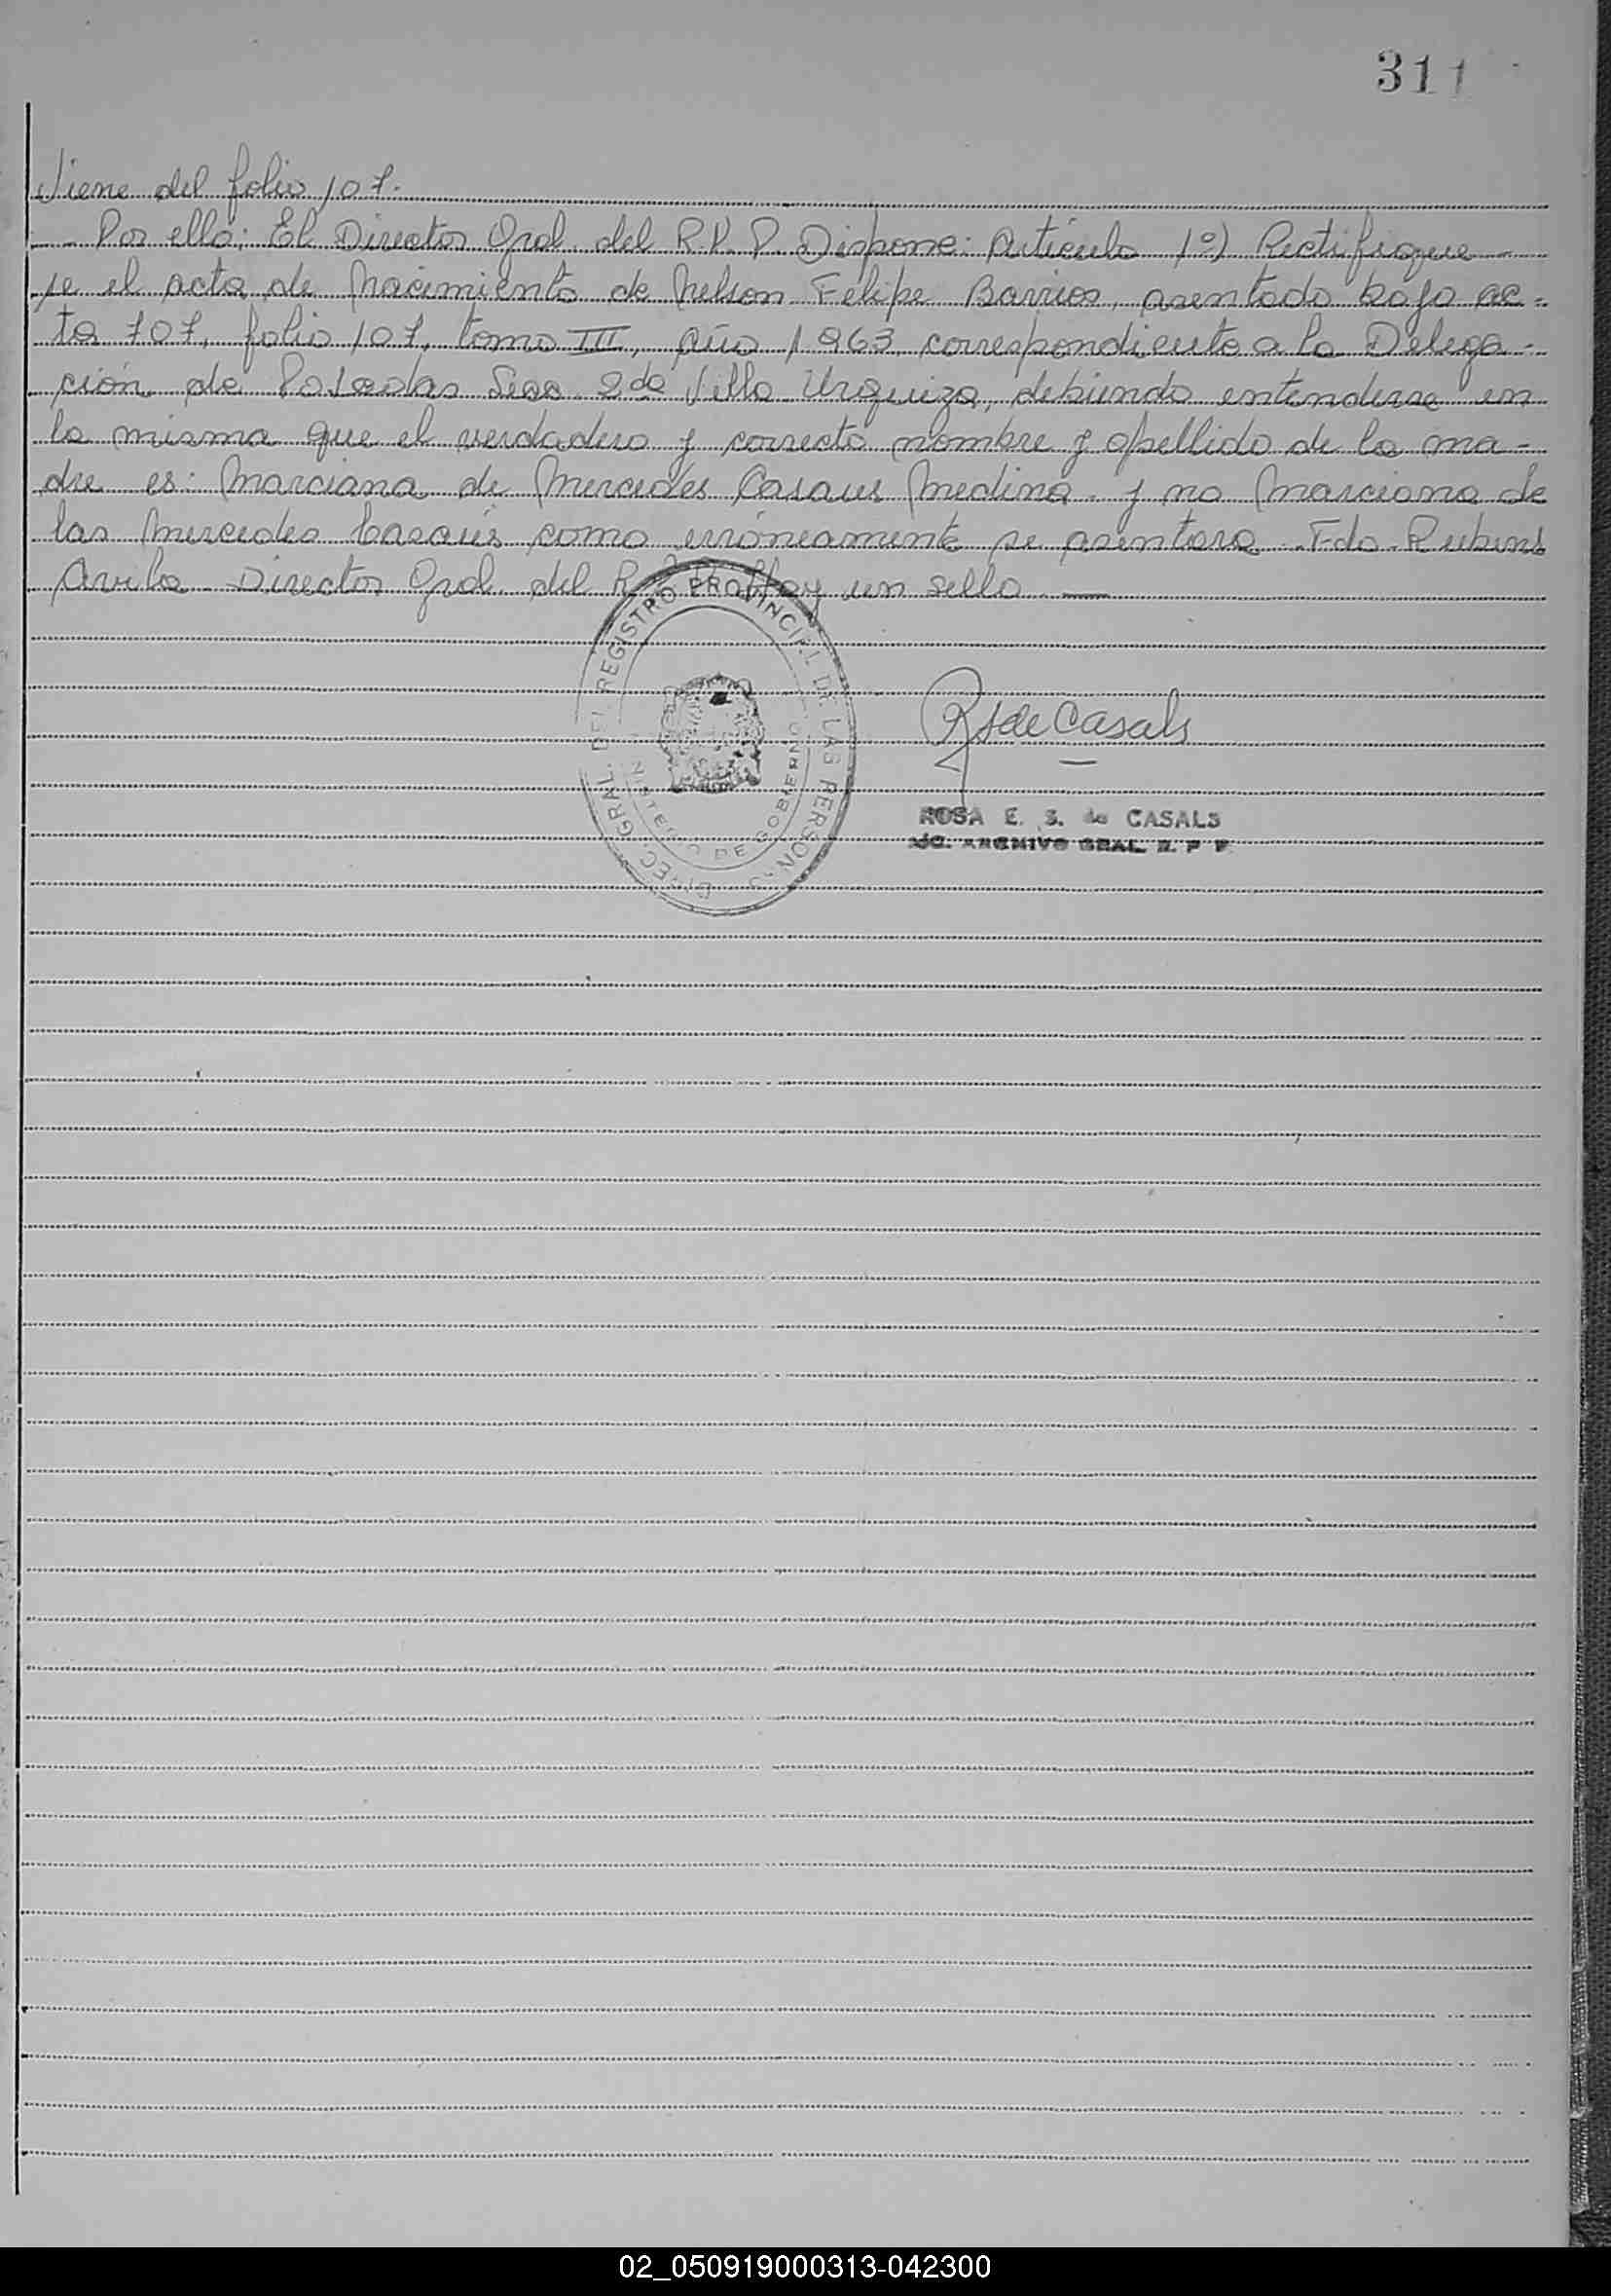 311
Viene del folio 107.
- Por ello: El Director Gral. del R.P.P. Dispone: Artículo 1º) Rectifíque-
se el acta de Nacimiento de Nelson Felipe Barrios, asentado bajo ac-
ta 707, folio 107, tomo III, Año 1963 correspondiente a la Delega-
ción de Posadas Secc 2da Villa Urquiza, debiendo entenderse en
la misma que el verdadero y correcto nombre y apellido de la ma-
dre es: Marciana de Mercedes Casaus Medina. y no Marciana de
las Mercedes Casaús como erróneamente se asentara. Fdo. Rubens
Avila Director Gral. del R.P.P. Hay un sello. —
DIREC. GRAL. DEL REGISTRO PROVINCIAL DE LAS PERSONAS
MINISTERIO DE GOBIERNO
R S de Casals
ROSA E. S. de CASALS
ARCHIVO GRAL. R. P P
02_050919000313-042300